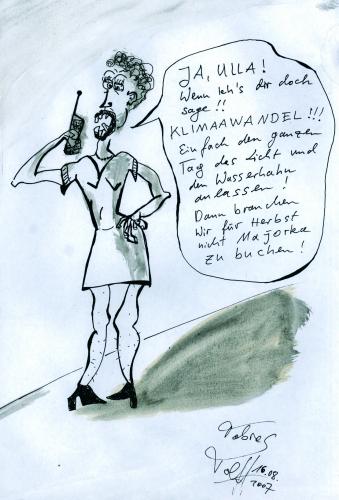 JA, ULLA!
Wenn ich's dir doch
sage!!
KLIMAAWANDEL!!!
Einfach den ganzen
Tag das Licht und
den Wasserhahn
anlassen!
Dann brauchen
wir für Herbst
nicht Majorka
zu buchen!
16.08.
2007